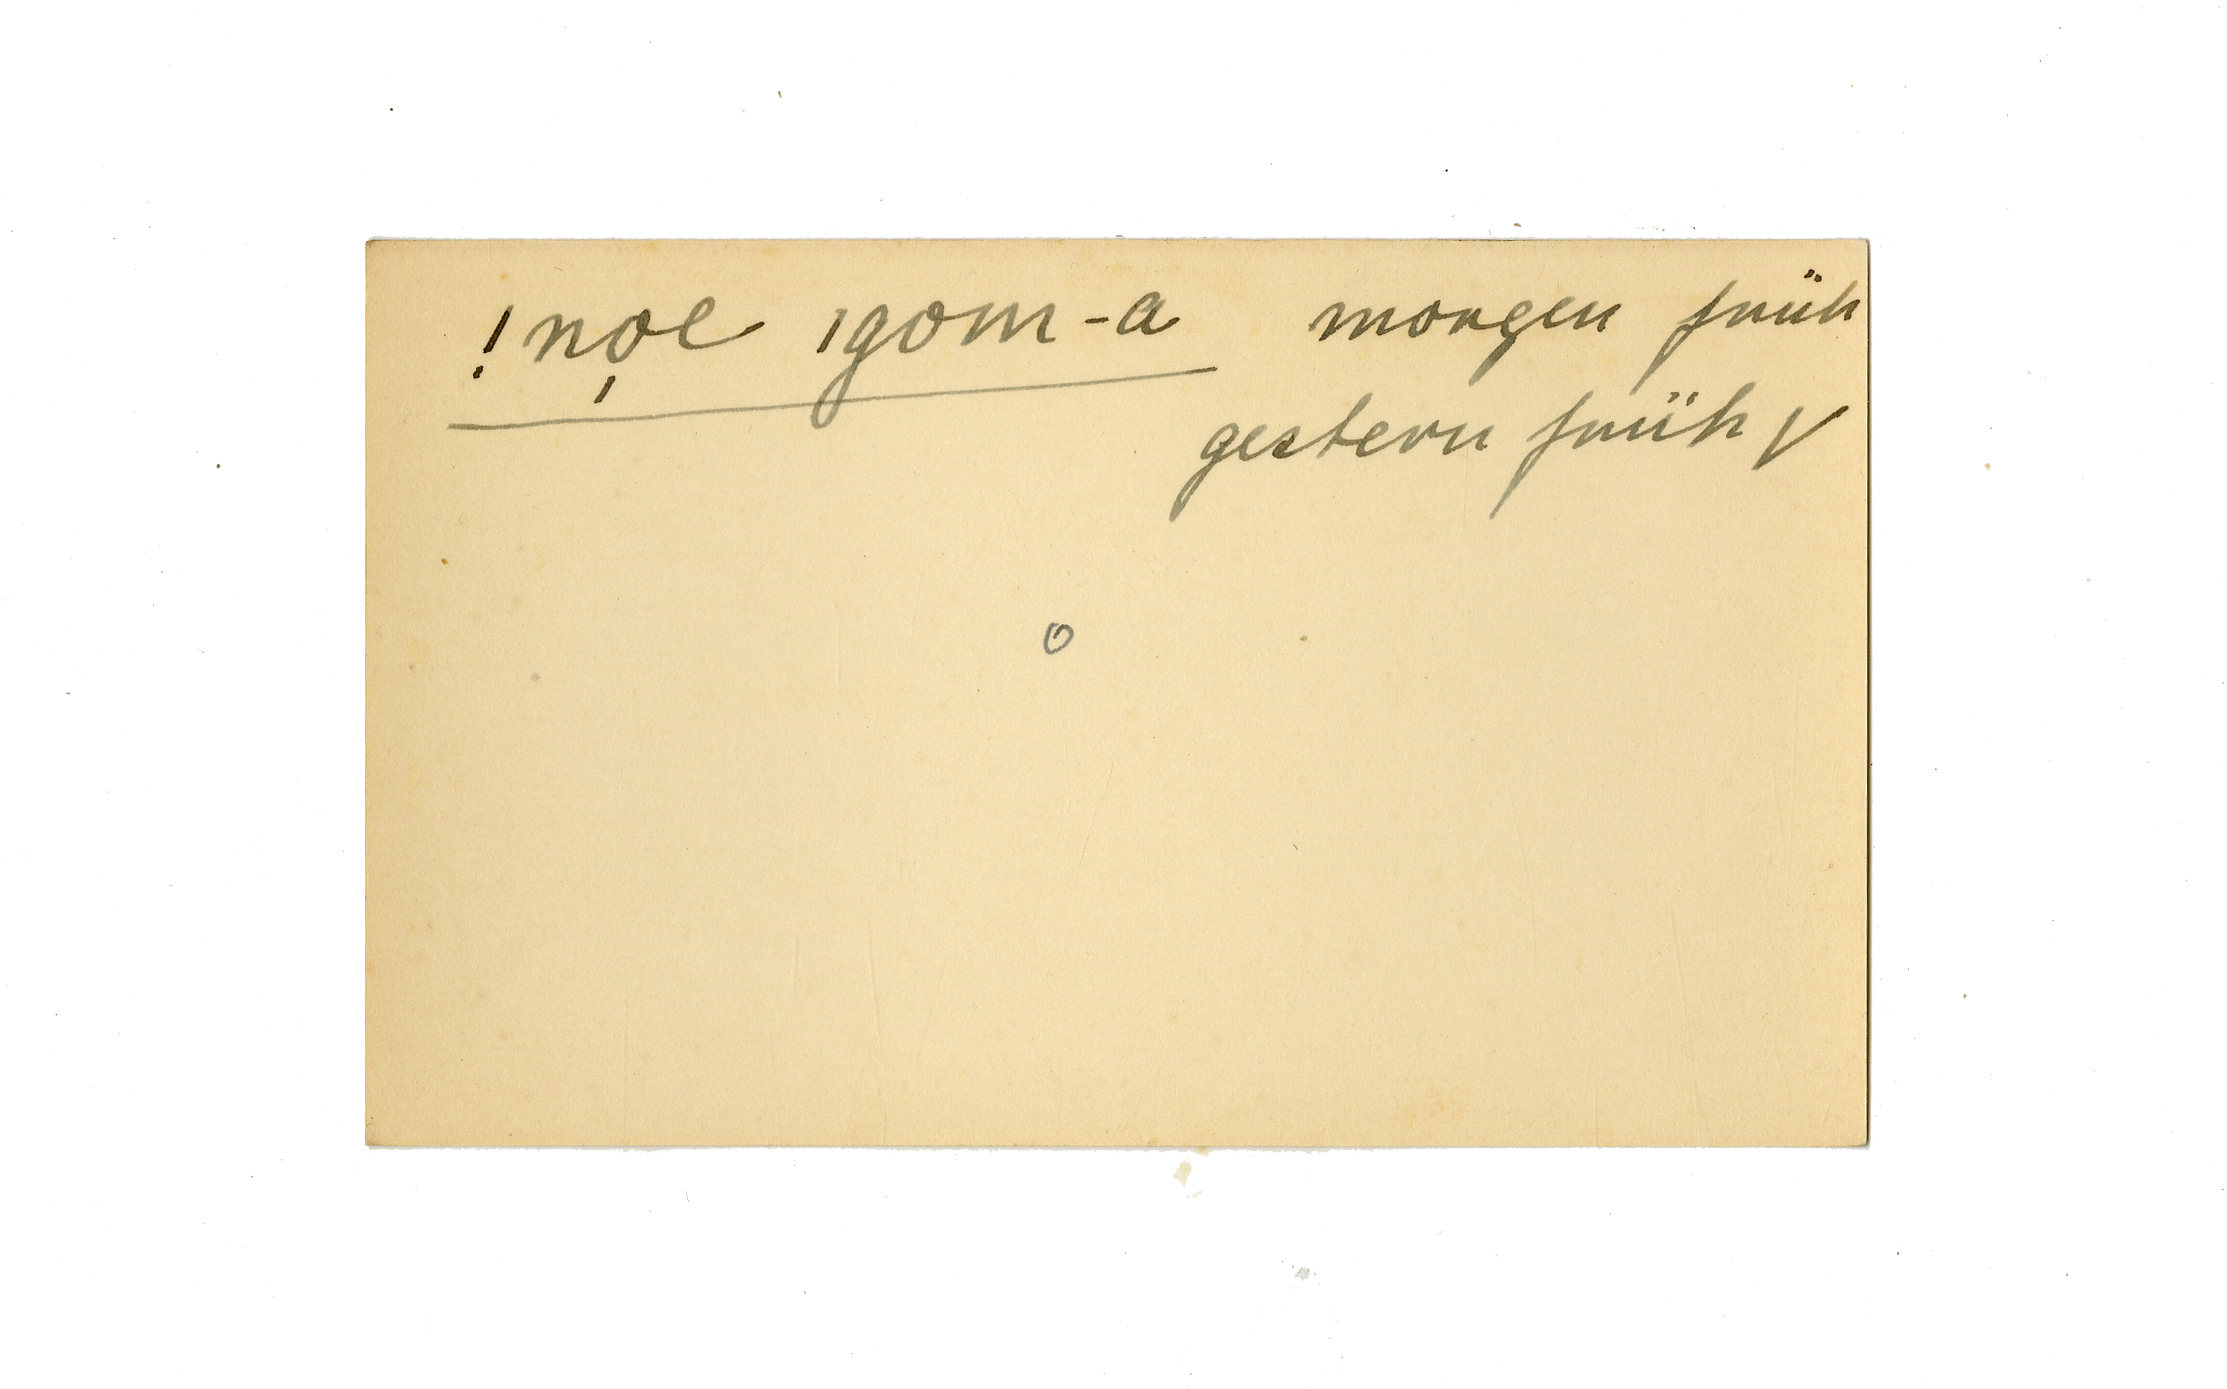 !no̩e ıgom-a morgen früh
gestern früh √
o